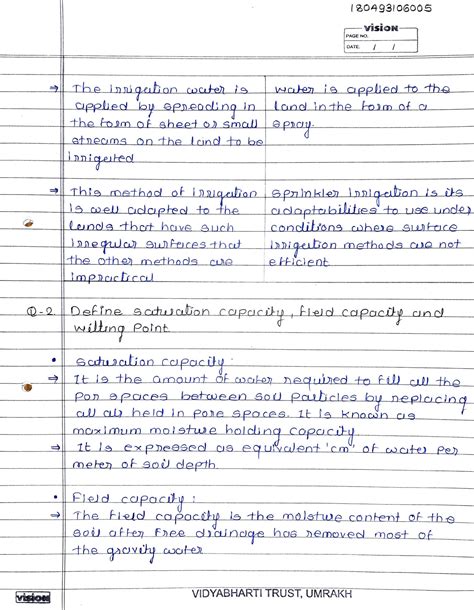 180493106005
vision
PAGE NO.
DATE: / /
⇒ The irrigation water is | water is applied to the
applied by spreading in | land in the form of a
the form of sheet or small | spray.
streams on the land to be
irrigated
⇒ This method of irrigation | sprinkler irrigation is its
is well adapted to the | adaptabilities to use under
lands that have such | conditions where surface
irregular surfaces that | irrigation methods are not
the other methods are | efficient
impractical
Q-2. Define saturation capacity, field capacity and
wilting Point
• saturation capacity:
⇒ It is the amount of water required to fill all the
Por spaces between soil particles by replacing
all air held in pore spaces. It is known as
maximum moisture holding capacity.
⇒ It is expressed as equivalent 'cm' of water Per
meter of soil depth.
• Field capacity:
⇒ The field capacity is the moisture content of the
soil after free drainage has removed most of
the gravity water
vision
VIDYABHARTI TRUST, UMRAKH